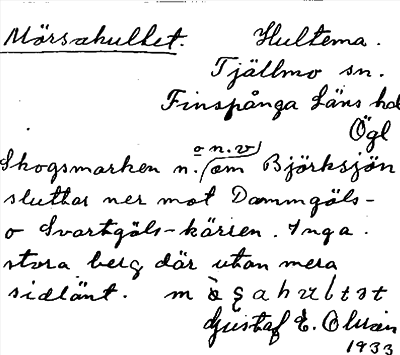 Mörsakullet. Hultema.
Tjällmo sn.
Finspånga Läns hd
Ögl
Skogsmarken n. o n.v om Björksjön
sluttar ner mot Dammgöls-
o Svartgöls-kärren. Inga
stora berg där utan mera
sidlänt.
Gustaf E. Olsson
1933